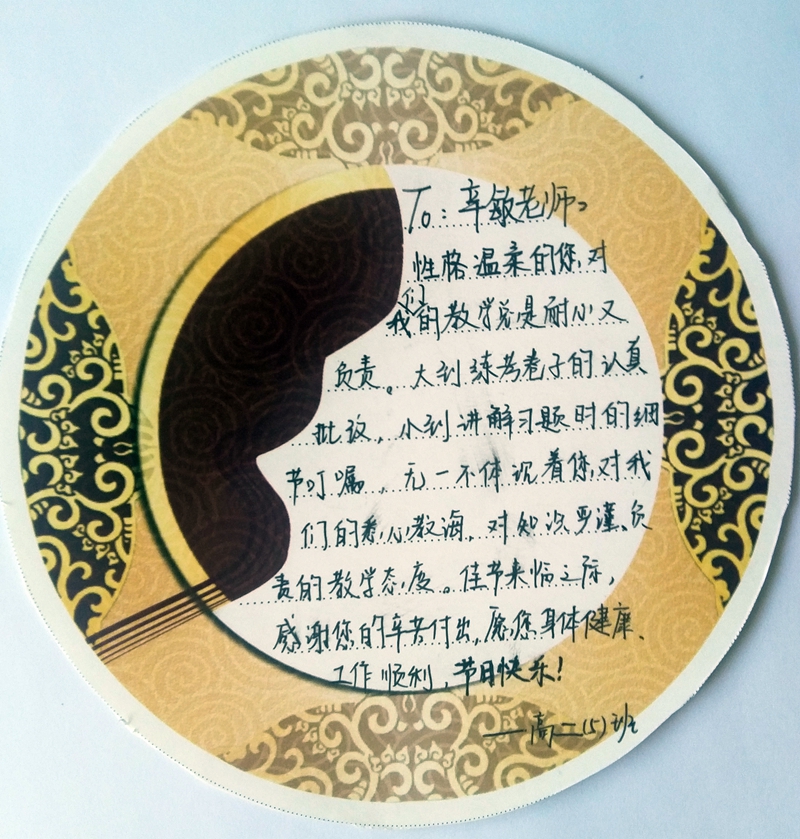 To：辛敏老师：
性格温柔的您，对
我们的教学总是耐心又
负责。大到练考卷子的认真
批改，小到讲解习题时的细
节叮嘱，无一不体现着您对我
们的悉心教诲，对知识严谨、负
责的教学态度。佳节来临之际，
感谢您的辛苦付出，愿您身体健康、
工作顺利，节日快乐！
——高二(5)班